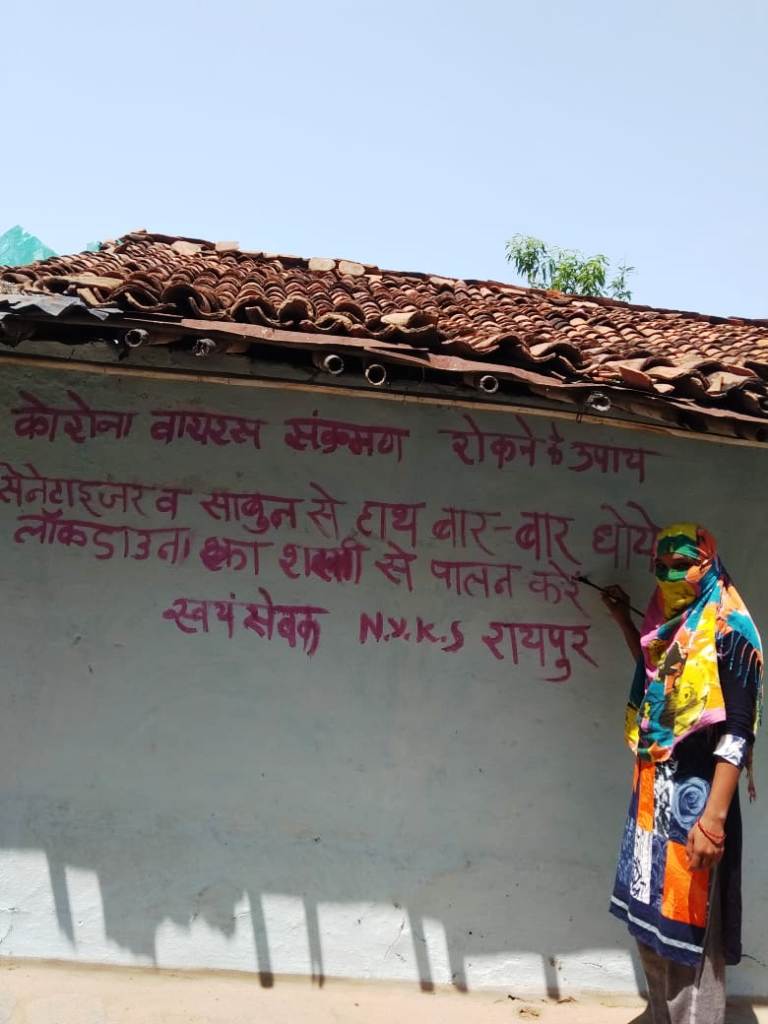 कोरोना वायरस संक्रमण रोकने के उपाय
सेनेटाइजर व साबुन से हाथ बार-बार धोये
लॉकडाउन का से पालन करें
स्वयं सेवक N.Y.K.S रायपुर